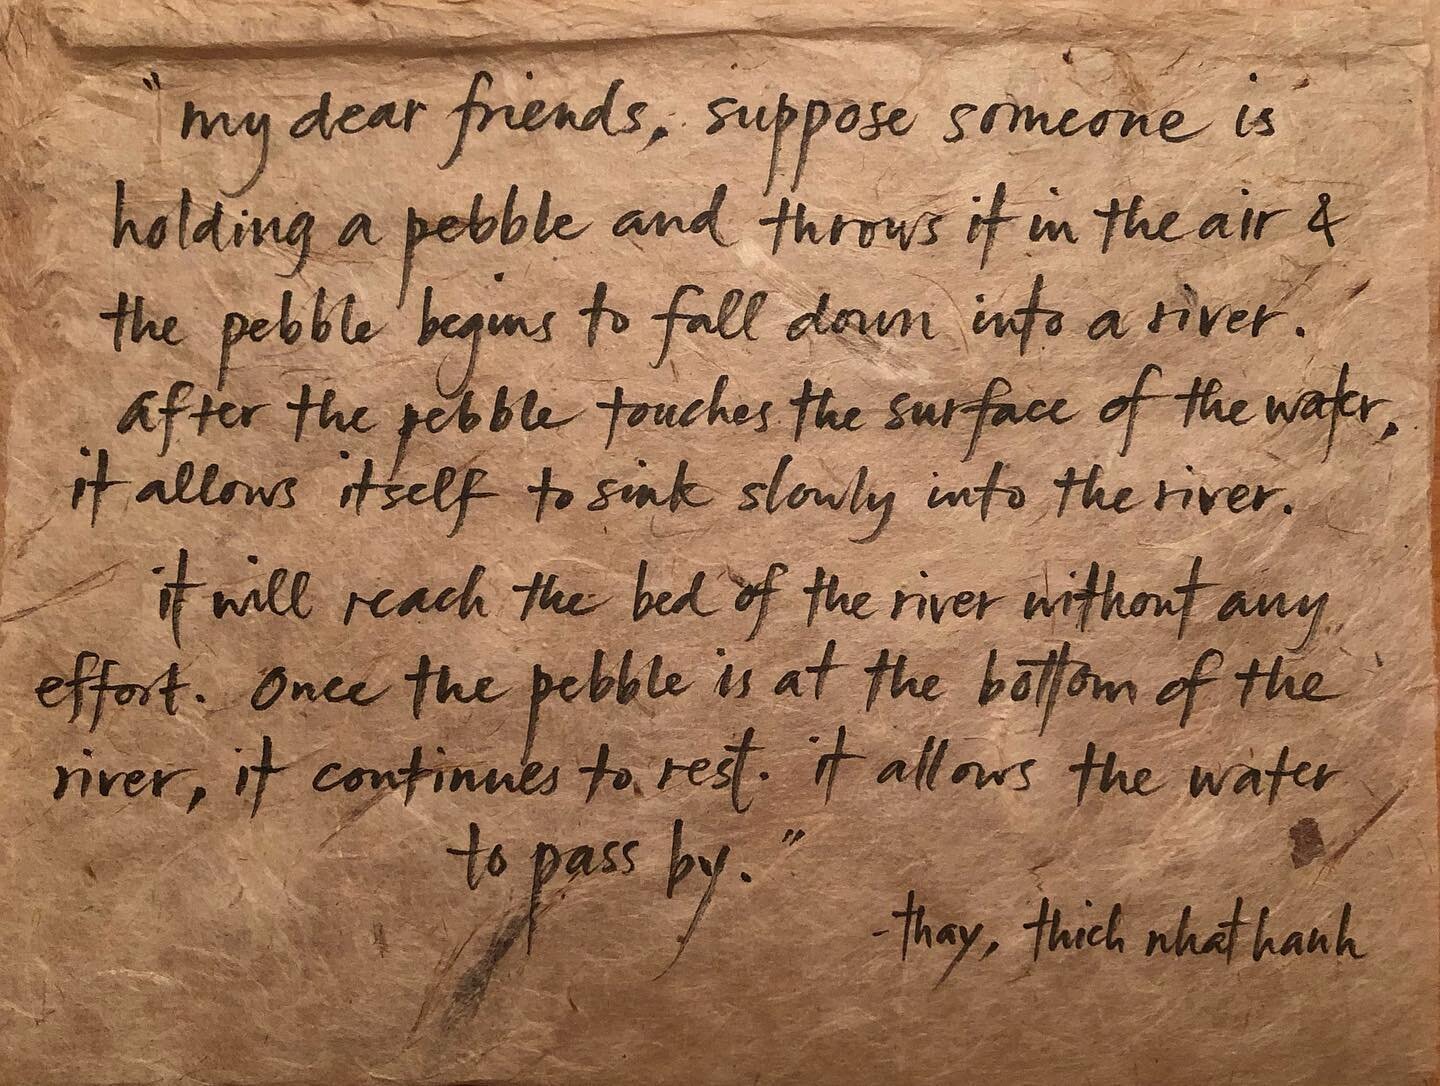 "my dear friends, suppose someone is
holding a pebble and throws it in the air &
the pebble begins to fall down into a river.
after the pebble touches the surface of the water,
it allows itself to sink slowly into the river.
it will reach the bed of the river without any
effort. Once the pebble is at the bottom of the
river, it continues to rest. it allows the water
to pass by."
-thay, thich nhat hanh